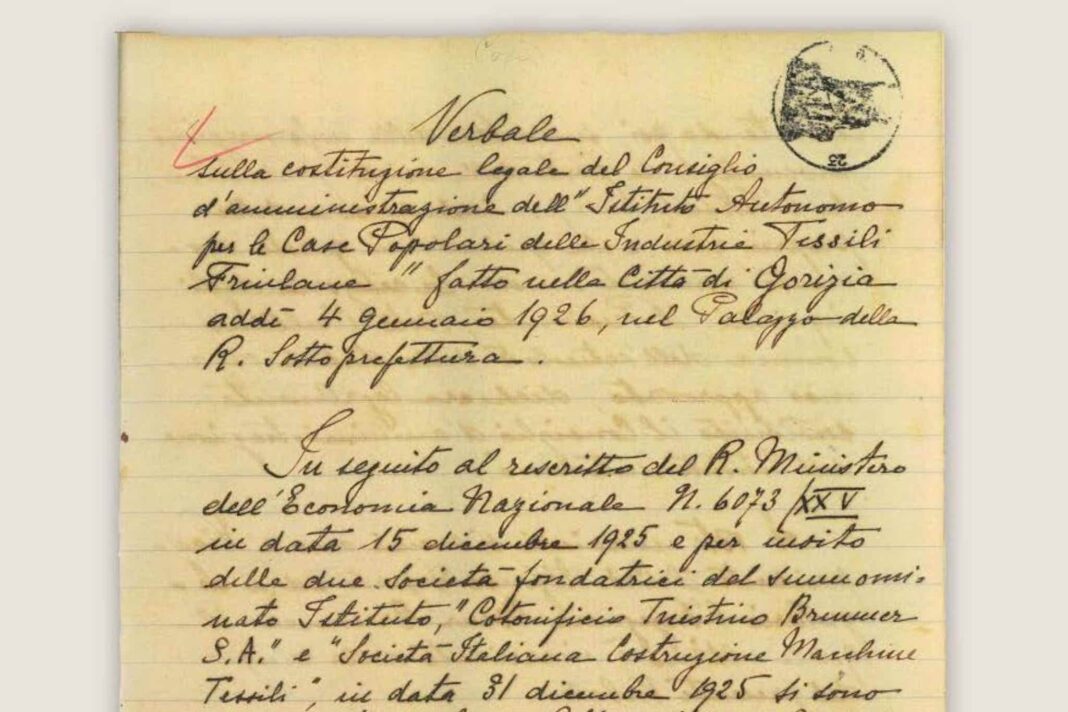 Verbale
sulla costituzione legale del Consiglio
d'amministrazione dell'"Istituto Autonomo
per le Case Popolari delle Industrie Tessili
Friulane" fatto nella Città di Gorizia
addì 4 gennaio 1926, nel Palazzo della
R. Sottoprefettura.
In seguito al rescritto del R. Ministero
dell'Economia Nazionale N. 6073/XXV
in data 15 dicembre 1925 e per invito
delle due Società fondatrici del summomi=
nato Istituto, "Cotonificio Triestino Brunner
S.A." e "Società Italiana Costruzione Macchine
Tessili", in data 31 dicembre 1925 si sono